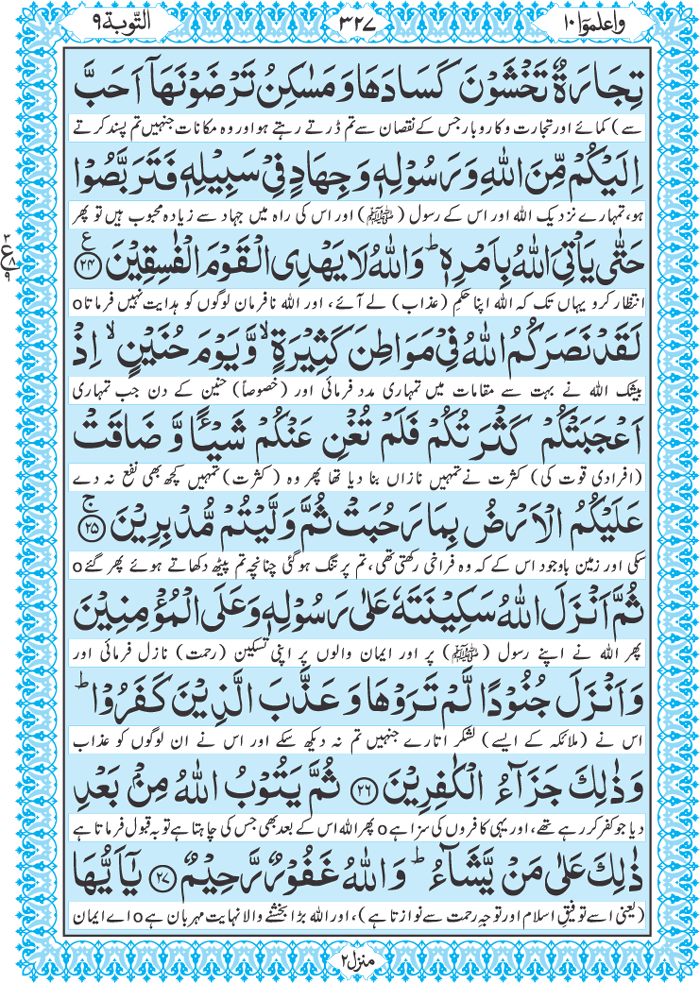 واعلموا ١٠
٣٢٧
التوبة ٩
تِجَارَةٌ تَخْشَوْنَ كَسَادَهَا وَمَسٰكِنُ تَرْضَوْنَهَاۤ اَحَبَّ
سے) کمائے اور تجارت و کاروبار جس کے نقصان سے تم ڈرتے رہتے ہو اور وہ مکانات جنہیں تم پسند کرتے
اِلَيْكُمْ مِّنَ اللهِ وَرَسُوْلِهٖ وَجِهَادٍ فِيْ سَبِيْلِهٖ فَتَرَبَّصُوْا
ہو، تمہارے نزدیک اللہ اور اس کے رسول (ﷺ) اور اس کی راہ میں جہاد سے زیادہ محبوب ہیں تو پھر
حَتّٰى يَاْتِيَ اللهُ بِاَمْرِهٖ ؕ وَاللهُ لَا يَهْدِى الْقَوْمَ الْفٰسِقِيْنَ ﴿٢٤﴾ ع
انتظار کرو یہاں تک کہ اللہ اپنا حکمِ (عذاب) لے آئے، اور اللہ نافرمان لوگوں کو ہدایت نہیں فرماتا o
لَقَدْ نَصَرَكُمُ اللهُ فِيْ مَوَاطِنَ كَثِيْرَةٍ ۙ وَّيَوْمَ حُنَيْنٍ ۙ اِذْ
بیشک اللہ نے بہت سے مقامات میں تمہاری مدد فرمائی اور (خصوصاً) حنین کے دن جب تمہاری
اَعْجَبَتْكُمْ كَثْرَتُكُمْ فَلَمْ تُغْنِ عَنْكُمْ شَيْـًٔا وَّ ضَاقَتْ
(افرادی قوت کی) کثرت نے تمہیں نازاں بنا دیا تھا پھر وہ (کثرت) تمہیں کچھ بھی نفع نہ دے
عَلَيْكُمُ الْاَرْضُ بِمَا رَحُبَتْ ثُمَّ وَلَّيْتُمْ مُّدْبِرِيْنَ ﴿٢٥﴾ ج
سکی اور زمین باوجود اس کے کہ وہ فراخی رکھتی تھی، تم پر تنگ ہو گئی چنانچہ تم پیٹھ دکھاتے ہوئے پھر گئے o
ثُمَّ اَنْزَلَ اللهُ سَكِيْنَتَهٗ عَلٰى رَسُوْلِهٖ وَعَلَى الْمُؤْمِنِيْنَ
پھر اللہ نے اپنے رسول (ﷺ) پر اور ایمان والوں پر اپنی تسکین (رحمت) نازل فرمائی اور
وَاَنْزَلَ جُنُوْدًا لَّمْ تَرَوْهَا وَعَذَّبَ الَّذِيْنَ كَفَرُوْا ؕ
اس نے (ملائکہ کے ایسے) لشکر اتارے جنہیں تم نہ دیکھ سکے اور اس نے ان لوگوں کو عذاب
وَذٰلِكَ جَزَآءُ الْكٰفِرِيْنَ ﴿٢٦﴾ ثُمَّ يَتُوْبُ اللهُ مِنْۢ بَعْدِ
دیا جو کفر کر رہے تھے، اور یہی کافروں کی سزا ہے o پھر اللہ اس کے بعد بھی جس کی چاہتا ہے توبہ قبول فرماتا ہے
ذٰلِكَ عَلٰى مَنْ يَّشَآءُ ؕ وَاللهُ غَفُوْرٌ رَّحِيْمٌ ﴿٢٧﴾ يٰۤاَيُّهَا
(یعنی اسے توفیقِ اسلام اور توجہِ رحمت سے نوازتا ہے)، اور اللہ بڑا بخشنے والا نہایت مہربان ہے o اے ایمان
منزل ٢